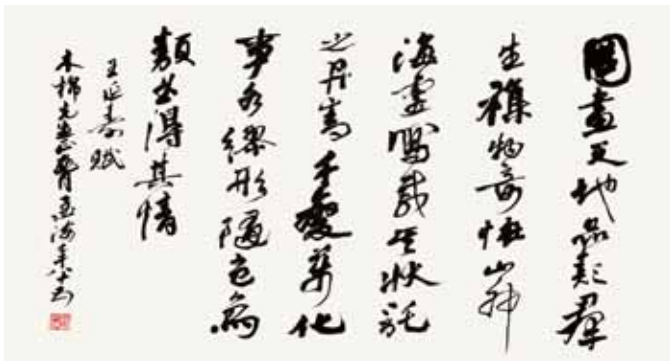 圖畫天地品類羣
生襍物奇怪山神
海靈寫載其狀託
之丹青千變萬化
事各繆形隨色象
類曲得其情
王延壽賦
木棉先生正 孟海年八十五